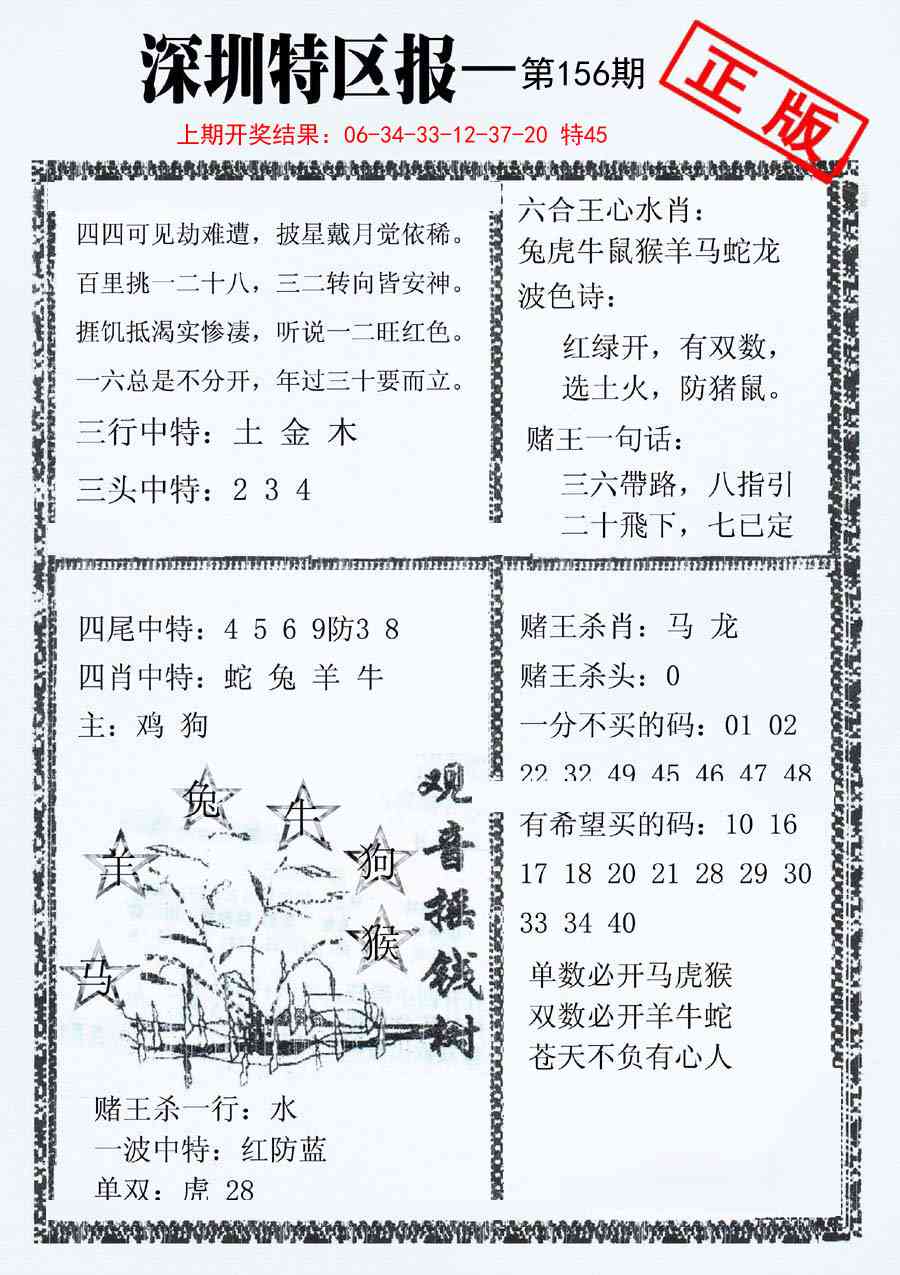 深圳特区报—第156期
正版
上期开奖结果：06-34-33-12-37-20 特45
四四可见劫难遭，披星戴月觉依稀。
百里挑一二十八，三二转向皆安神。
捱饥抵渴实惨凄，听说一二旺红色。
一六总是不分开，年过三十要而立。
三行中特：土 金 木
三头中特：2 3 4
六合王心水肖：
兔虎牛鼠猴羊马蛇龙
波色诗：
红绿开，有双数，
选土火，防猪鼠。
赌王一句话：
三六帶路，八指引
二十飛下，七已定
四尾中特：4 5 6 9防3 8
四肖中特：蛇 兔 羊 牛
主：鸡 狗
兔
牛
羊
狗
猴
马
观音摇钱树
赌王杀一行：水
一波中特：红防蓝
单双：虎 28
赌王杀肖：马 龙
赌王杀头：0
一分不买的码：01 02
22 32 49 45 46 47 48
有希望买的码：10 16
17 18 20 21 28 29 30
33 34 40
单数必开马虎猴
双数必开羊牛蛇
苍天不负有心人